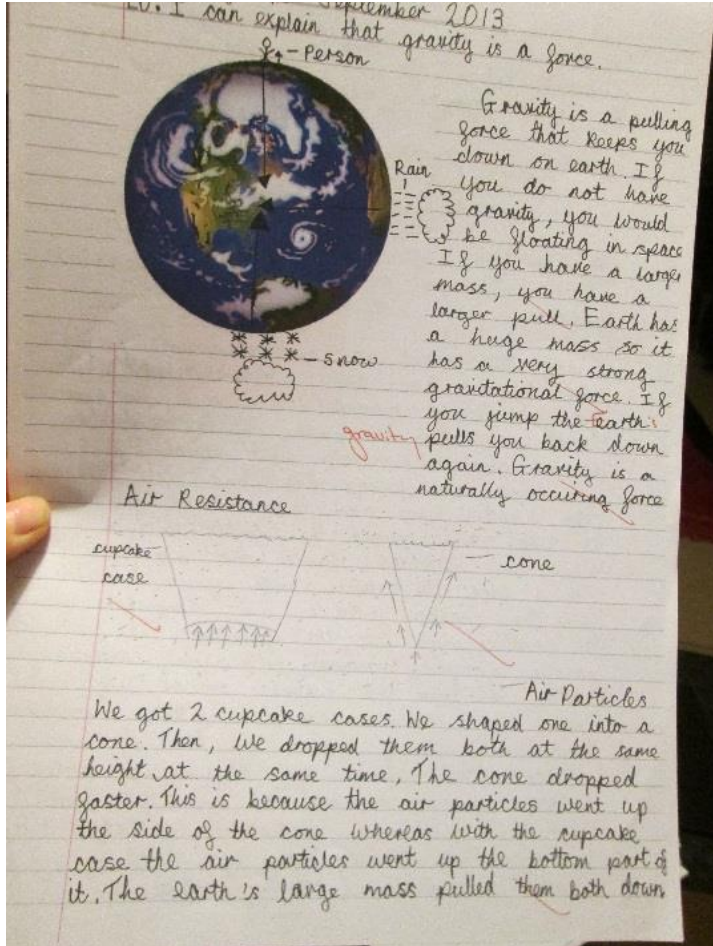 September 2013
LO: I can explain that gravity is a force.
Person
Gravity is a pulling
force that keeps you
down on earth. If
you do not have
gravity, you would
be floating in space
If you have a larger
mass, you have a
larger pull. Earth has
a huge mass so it
has a very strong
gravitational force. If
you jump the Earth's
pulls you back down
again. Gravity is a
naturally occuring force
Rain
Snow
gravity
Air Resistance
cupcake
case
cone
Air Particles
We got 2 cupcake cases. We shaped one into a
cone. Then, we dropped them both at the same
height at the same time. The cone dropped
faster. This is because the air particles went up
the side of the cone whereas with the cupcake
case the air particles went up the bottom part of
it. The earth's large mass pulled them both down